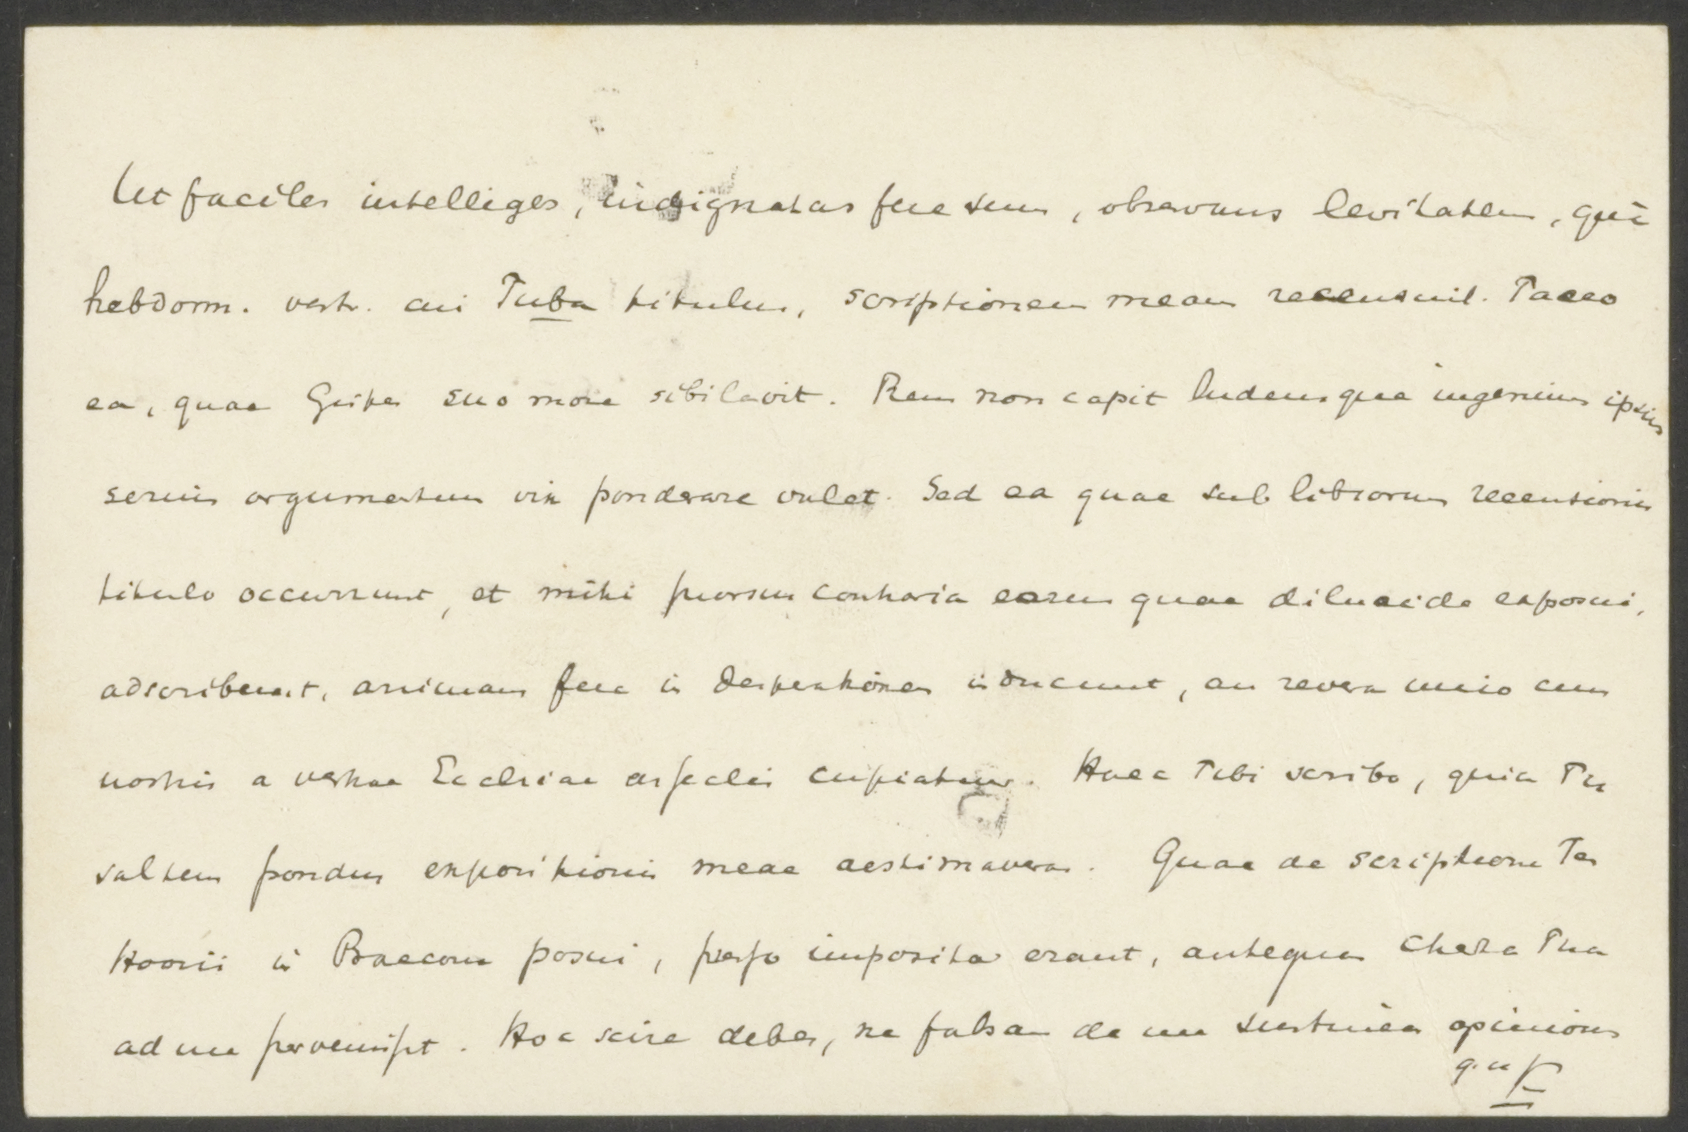 Ut faciles intelliges, indignatus fere sum, observans levitatem, qua
hebdom. vestr. cui Tuba titulus, scriptionem meam recensuit. Taceo
ea, quae suo more sibilavit. Rem non capit ludensque ingenium ipsius
serium argumentum vix ponderare valet. Sed ea quae sub librorum recensionis
titulo occurrunt, et mihi prorsus contraria earum quae dilucide exposui,
adscribunt, animam fere in desperationem inducunt, an revera unio cum
nostris a vestrae Ecclesiae asseclis cupiatur. Haec Tibi scribo, quia Tu
saltem pondus expositionis meae aestimaveras. Quae de scriptione Ter
Hoorii in Praecone posui, praelo imposita erant, antequam charta Tua
ad me pervenisset. Hoc scire debes, ne falsam de me sustineas opinionem
K